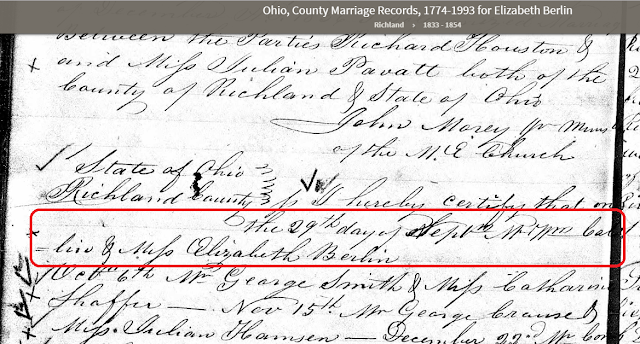 Ohio, County Marriage Records, 1774-1993 for Elizabeth Berlin
Richland › 1833 - 1854
Between the Parties Richard Houston &
and Miss Julian Pavatt both of the
County of Richland & State of Ohio
John Morey
of the M. E. Church
State of Ohio
Richland County ss I hereby certify that on
the 29th day of Sept Mr Wm
& Miss Elizabeth Berlin
Oct 6th Mr George Smith & Miss Catharine
Shaffer — Nov 15th Mr George Crause &
Miss Julian Hamsen — December 22nd Mr